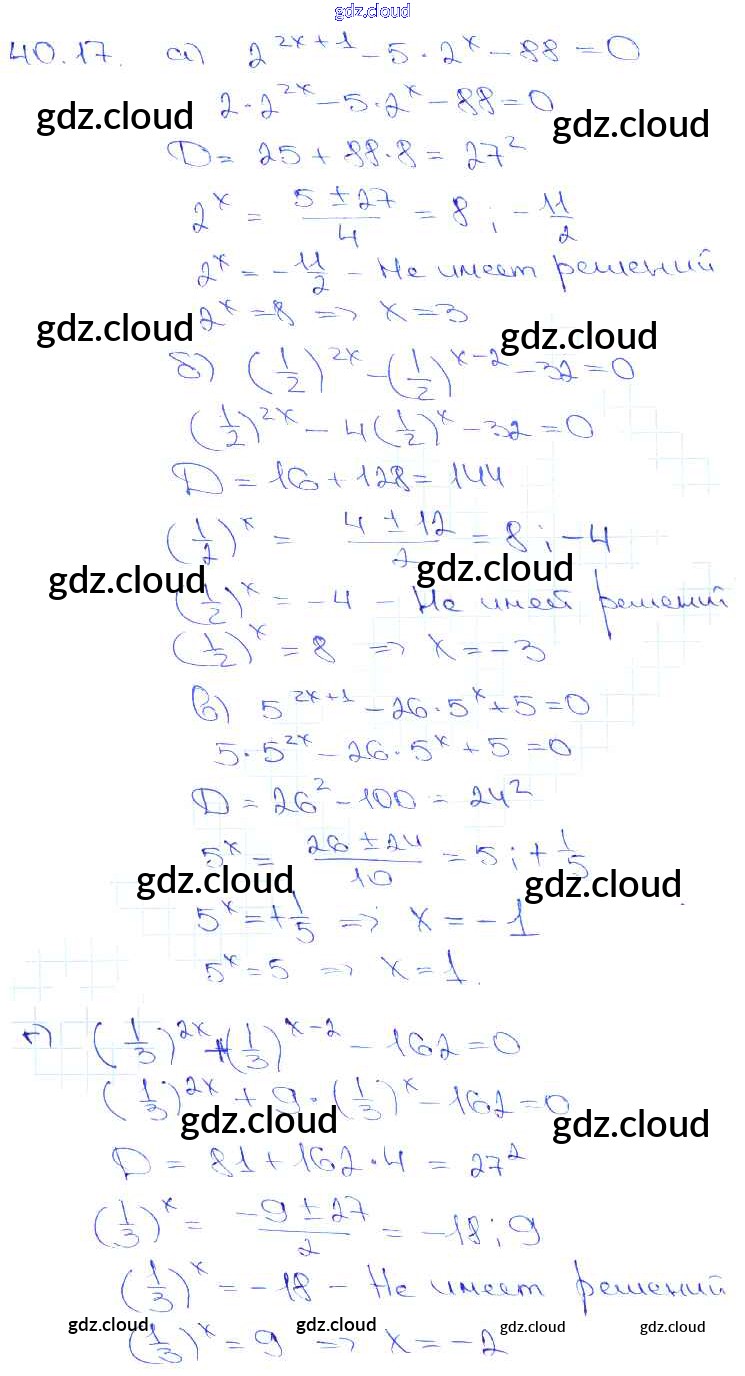 gdz.cloud
40.17. а) 2^(2x+1) - 5·2^x - 88 = 0
2·2^(2x) - 5·2^x - 88 = 0
gdz.cloud gdz.cloud
D = 25 + 88·8 = 27^2
2^x = (5 ± 27)/4 = 8 ; -11/2
2^x = -11/2 - Не имеет решений
2^x = 8 => x = 3
gdz.cloud gdz.cloud
б) (1/2)^(2x) - (1/2)^(x-2) - 32 = 0
(1/2)^(2x) - 4(1/2)^x - 32 = 0
D = 16 + 128 = 144
(1/2)^x = (4 ± 12)/2 = 8 ; -4
gdz.cloud gdz.cloud
(1/2)^x = -4 - Не имеет решений
(1/2)^x = 8 => x = -3
в) 5^(2x+1) - 26·5^x + 5 = 0
5·5^(2x) - 26·5^x + 5 = 0
D = 26^2 - 100 = 24^2
5^x = (26 ± 24)/10 = 5 ; +1/5
gdz.cloud gdz.cloud
5^x = +1/5 => x = -1
5^x = 5 => x = 1.
г) (1/3)^(2x) + (1/3)^(x-2) - 162 = 0
(1/3)^(2x) + 9·(1/3)^x - 162 = 0
gdz.cloud gdz.cloud
D = 81 + 162·4 = 27^2
(1/3)^x = (-9 ± 27)/2 = -18 ; 9
(1/3)^x = -18 - Не имеет решений
(1/3)^x = 9 => x = -2
gdz.cloud gdz.cloud gdz.cloud gdz.cloud